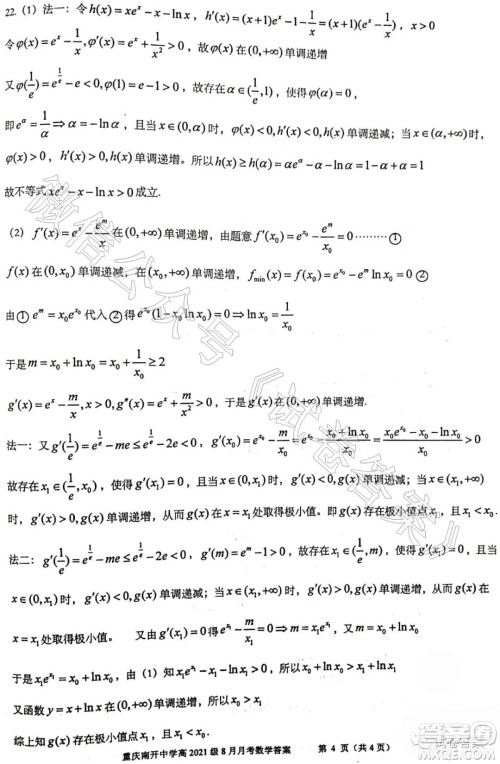 22.(1) 法一：令h(x)=xe^x-x-lnx，h'(x)=(x+1)e^x-1-1/x=(x+1)(e^x-1/x)，x>0
令φ(x)=e^x-1/x,φ'(x)=e^x+1/x²>0，故φ(x)在(0,+∞)单调递增
又φ(1/e)=e^(1/e)-e<0,φ(1)=e-1>0，故存在α∈(1/e,1)，使得φ(α)=0，
即e^α=1/α⇒α=-lnα，且当x∈(0,α)时，φ(x)<0,h'(x)<0,h(x)单调递减；当x∈(α,+∞)时，
φ(x)>0，h'(x)>0，h(x)单调递增。所以h(x)≥h(α)=αe^α-α-lnα=1-α+α=1
故不等式xe^x-x-lnx>0成立.
(2) f'(x)=e^x-e^m/x在(0,+∞)单调递增，由题意f'(x₀)=e^(x₀)-e^m/x₀=0………①
f(x)在(0,x₀)单调递减，在(x₀,+∞)单调递增，f_min(x)=f(x₀)=e^(x₀)-e^m lnx₀=0 ②
由① e^m=x₀e^(x₀)代入②得e^(x₀)(1-x₀lnx₀)=0⇒lnx₀=1/x₀
于是m=x₀+lnx₀=x₀+1/x₀≥2
g'(x)=e^x-m/x,x>0,g''(x)=e^x+m/x²>0，于是g'(x)在(0,+∞)单调递增.
法一：又g'(1/e)=e^(1/e)-me≤e^(1/e)-2e<0，g'(x₀)=e^(x₀)-m/x₀=e^(x₀)-(x₀+lnx₀)/x₀=(x₀e^(x₀)-x₀-lnx₀)/x₀>0
故存在x₁∈(1/e,x₀)，使得g'(x₁)=0，且当x∈(0,x₁)时，g'(x)<0,g(x)单调递减；当x∈(x₁,+∞)
时，g'(x)>0,g(x)单调递增.故g(x)在x=x₁处取得极小值。即g(x)存在极小值点x₁，且x₁<x₀.
法二：g'(1/e)=e^(1/e)-me≤e^(1/e)-2e<0，g'(m)=e^m-1>0，故存在x₁∈(1/e,m)，使得g'(x₁)=0.且当
x∈(0,x₁)时，g'(x)<0,g(x)单调递减；当x∈(x₁,+∞)时，g'(x)>0,g(x)单调递增.故g(x)在
x=x₁处取得极小值。 又由g'(x₁)=0得e^(x₁)-m/x₁=0，即x₁e^(x₁)=m，又m=x₀+lnx₀
于是x₁e^(x₁)=x₀+lnx₀，由（1）知x₁e^(x₁)>x₁+lnx₁，所以x₀+lnx₀>x₁+lnx₁
又函数y=x+lnx在(0,+∞)单调递增，所以x₁<x₀
综上知g(x)存在极小值点x₁，且x₁<x₀.
重庆南开中学高2021级8月月考数学答案 第4页（共4页）
微信公众号《试卷答案》